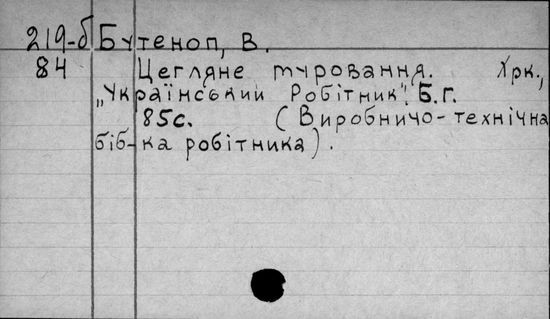 219-б Бутеноп, В.
84 Цегляне муровання. Хрк.,
„Український Робітник". Б.г.
85с. (Виробничо-технічна
біб-ка робітника).